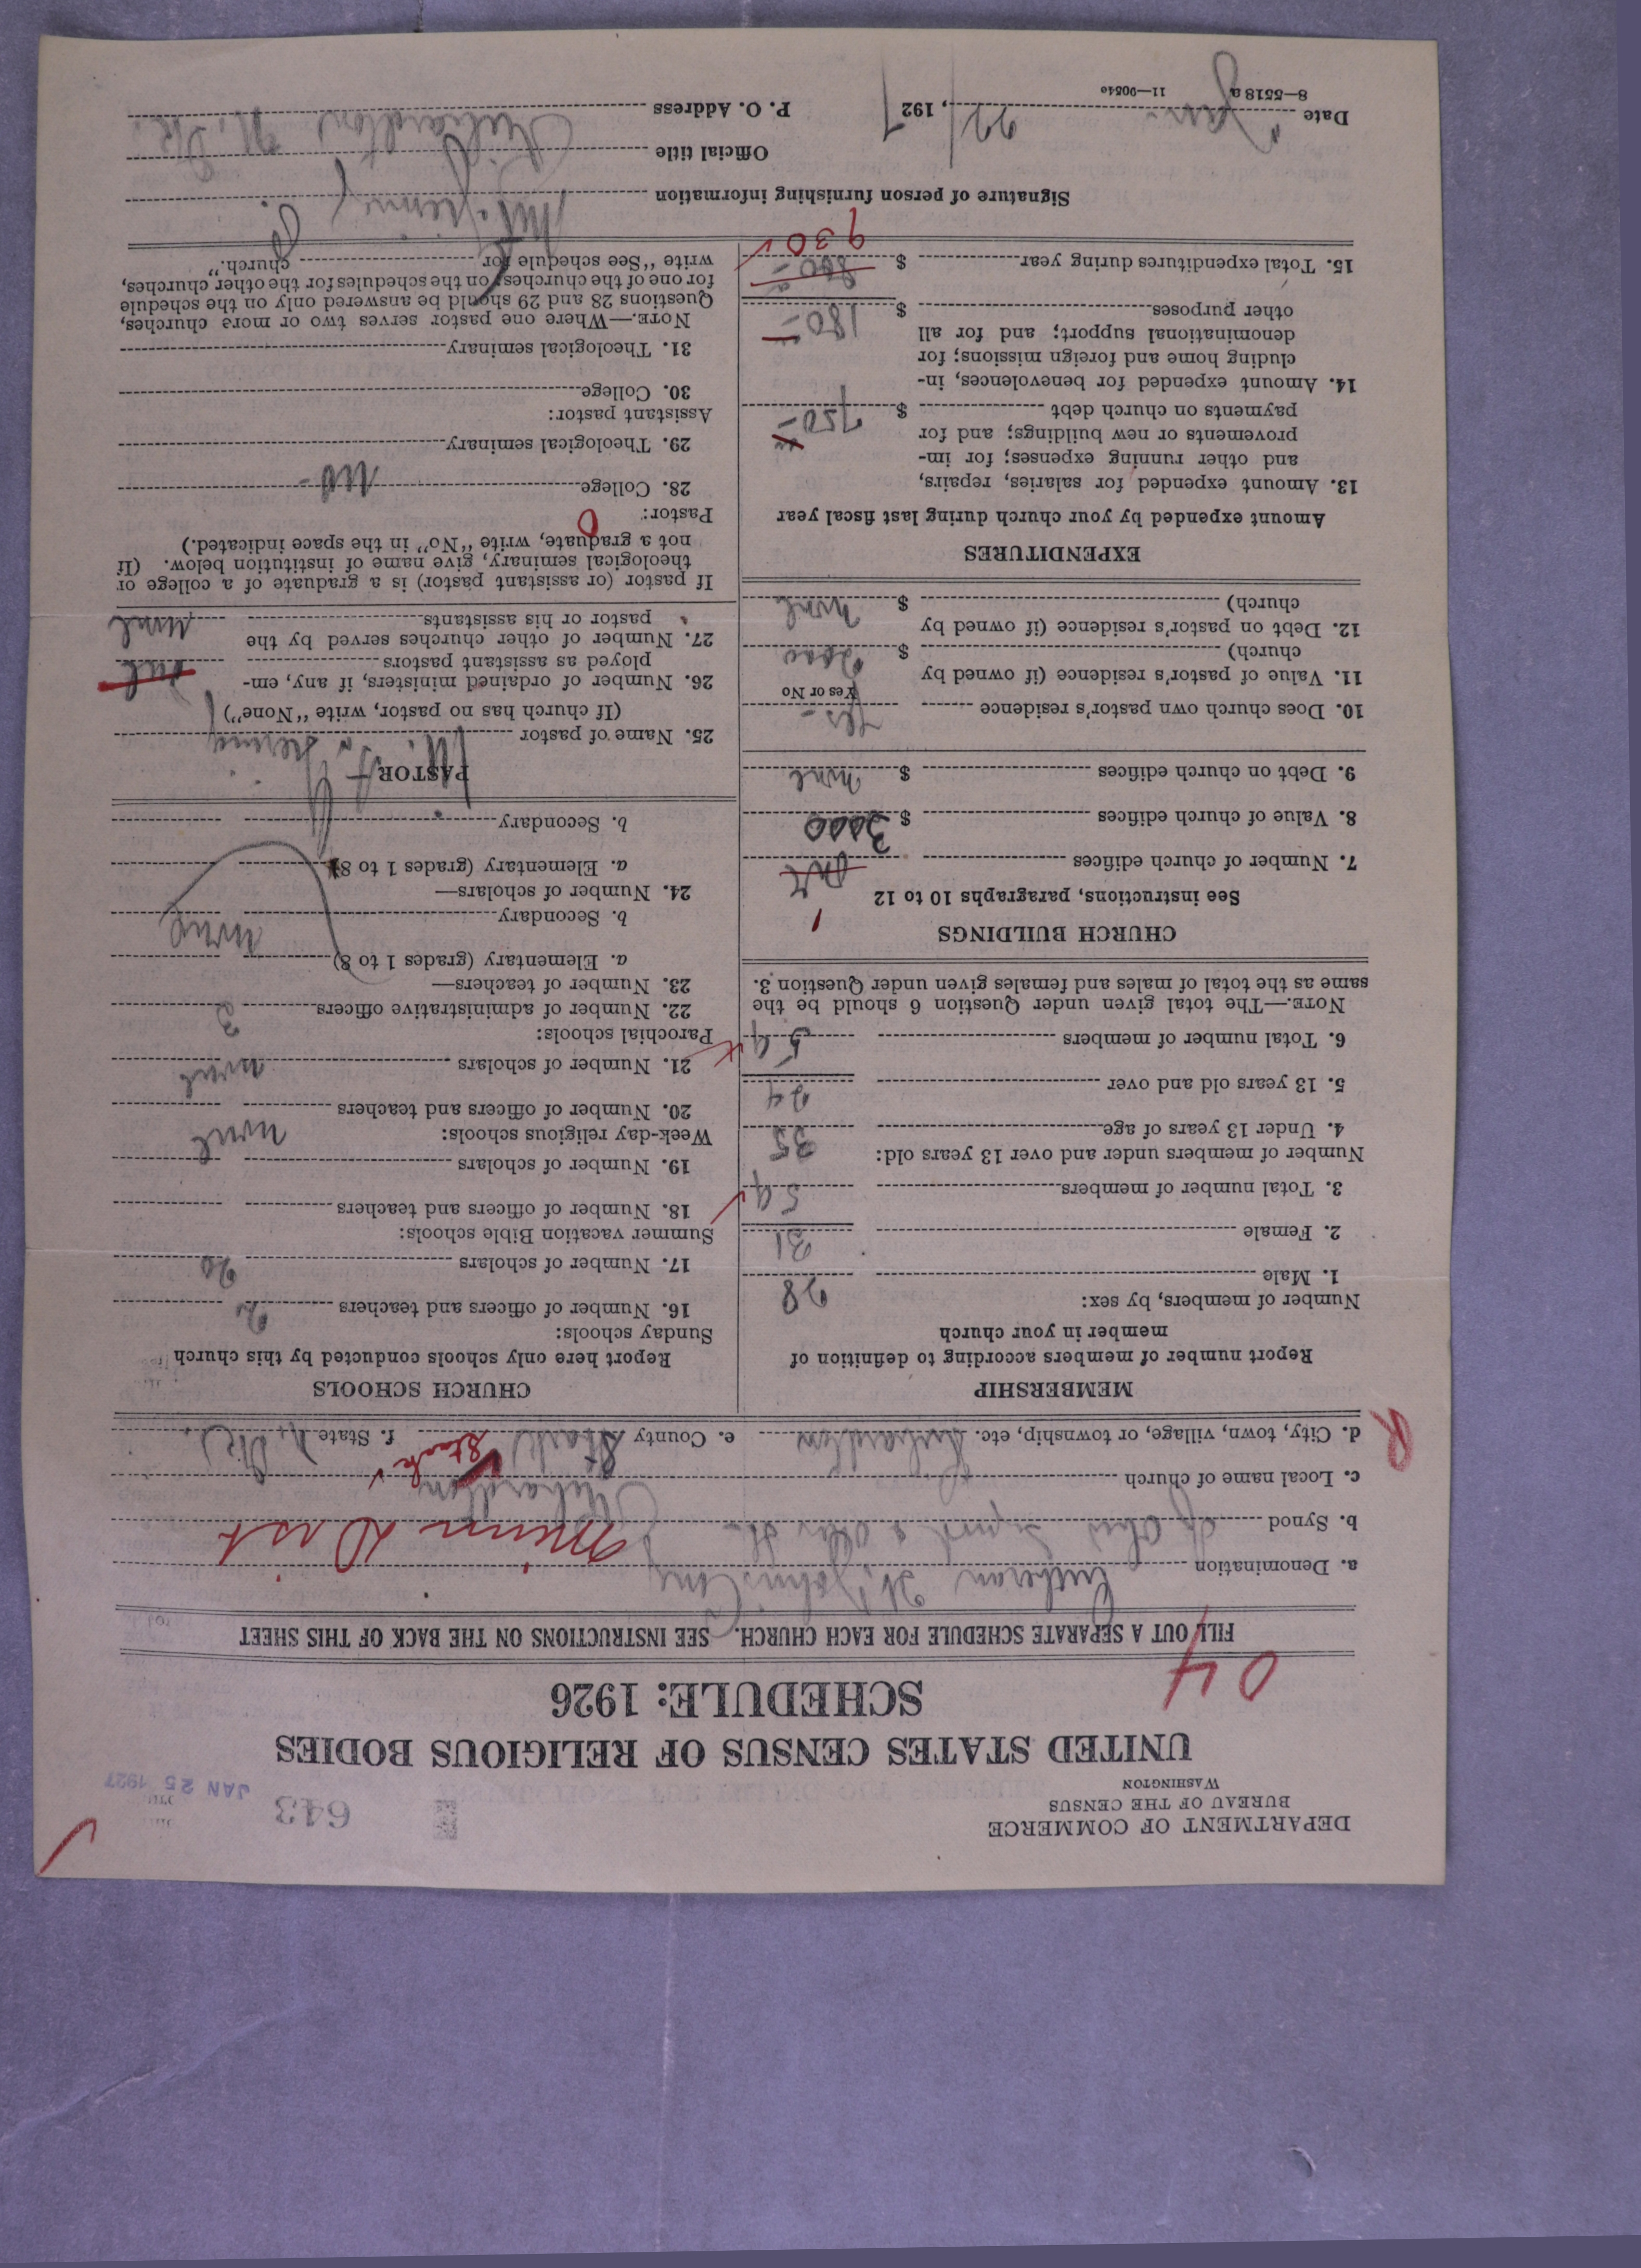 DEPARTMENT OF COMMERCE
BUREAU OF THE CENSUS
WASHINGTON
643
JAN 25 1927
UNITED STATES CENSUS OF RELIGIOUS BODIES
SCHEDULE: 1926
04
FILL OUT A SEPARATE SCHEDULE FOR EACH CHURCH. SEE INSTRUCTIONS ON THE BACK OF THIS SHEET
a. Denomination Lutheran St. Johns Cong
b. Synod of Ohio Synod & Other St. Minn Dist
c. Local name of church Richardton
d. City, town, village, or township, etc. Richardton e. County Stark Stark f. State N. Dk.
R
MEMBERSHIP
Report number of members according to definition of
member in your church
Number of members, by sex:
1. Male 28
2. Female 31
3. Total number of members 59
Number of members under and over 13 years old:
4. Under 13 years of age 35
5. 13 years old and over 24
6. Total number of members 59
NOTE.—The total given under Question 6 should be the
same as the total of males and females given under Question 3.
CHURCH BUILDINGS
See instructions, paragraphs 10 to 12
1
7. Number of church edifices
8. Value of church edifices $ 3000
9. Debt on church edifices $ none
10. Does church own pastor's residence Yes-
Yes or No
11. Value of pastor's residence (if owned by
church) $ 2000
12. Debt on pastor's residence (if owned by
church) $ none
EXPENDITURES
Amount expended by your church during last fiscal year
13. Amount expended for salaries, repairs,
and other running expenses; for im-
provements or new buildings; and for
payments on church debt $ 750-
14. Amount expended for benevolences, in-
cluding home and foreign missions; for
denominational support; and for all
other purposes $ 180-
15. Total expenditures during year $ 800-
930
CHURCH SCHOOLS
Report here only schools conducted by this church
Sunday schools:
16. Number of officers and teachers 2
17. Number of scholars 20
Summer vacation Bible schools:
18. Number of officers and teachers
19. Number of scholars none
Week-day religious schools:
20. Number of officers and teachers
21. Number of scholars none
Parochial schools:
22. Number of administrative officers
23. Number of teachers—
a. Elementary (grades 1 to 8)
b. Secondary none
24. Number of scholars—
a. Elementary (grades 1 to 8)
b. Secondary
PASTOR
25. Name of pastor
(If church has no pastor, write "None")
26. Number of ordained ministers, if any, em-
ployed as assistant pastors
27. Number of other churches served by the
pastor or his assistants none
If pastor (or assistant pastor) is a graduate of a college or
theological seminary, give name of institution below. (If
not a graduate, write "No" in the space indicated.)
Pastor: 0
28. College no-
29. Theological seminary
Assistant pastor:
30. College
31. Theological seminary
NOTE.—Where one pastor serves two or more churches,
Questions 28 and 29 should be answered only on the schedule
for one of the churches; on the schedules for the other churches,
write "See schedule for church."
Signature of person furnishing information
Official title
Date Jan. 22, 1927 P. O. Address Richardton N. Dk.
8—5518 a 11—9054e